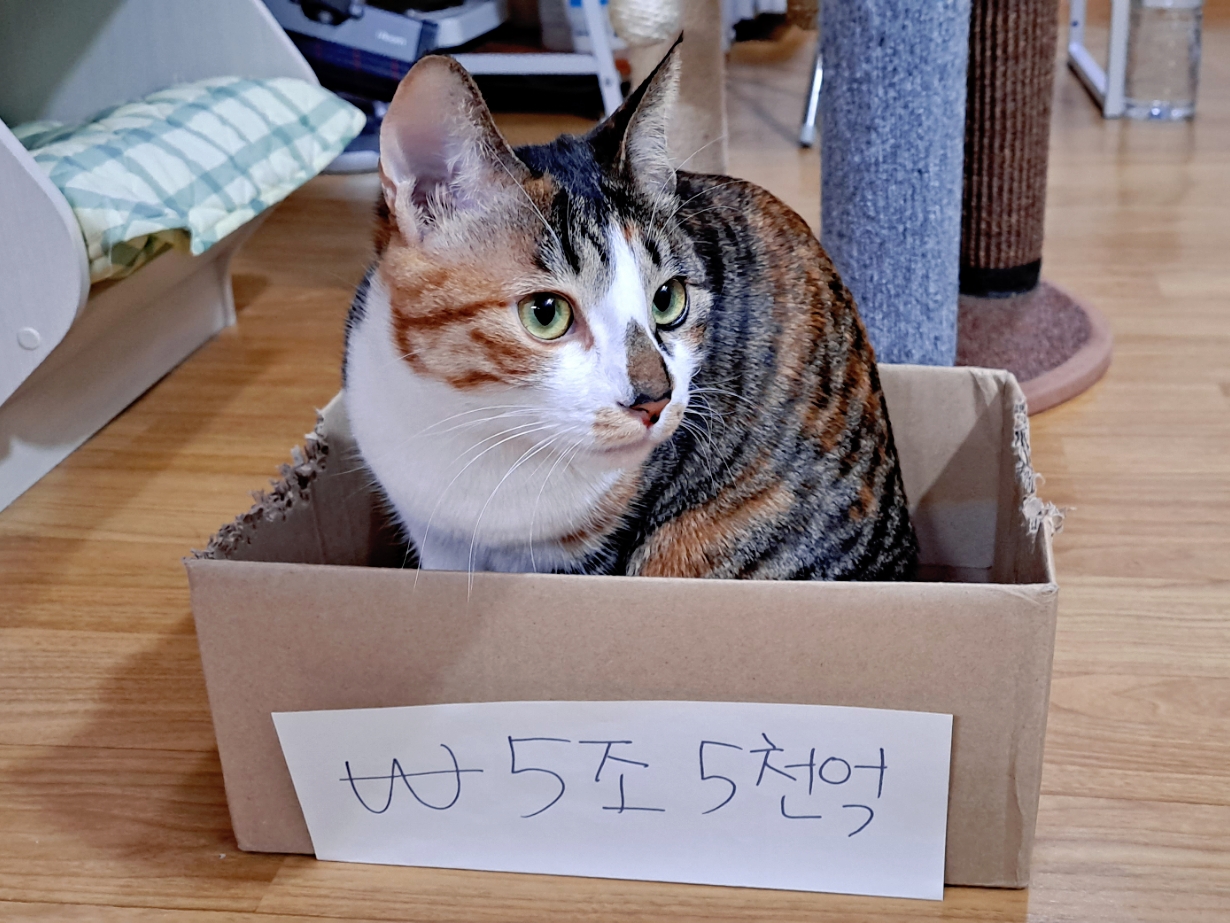 ₩ 5조 5천억